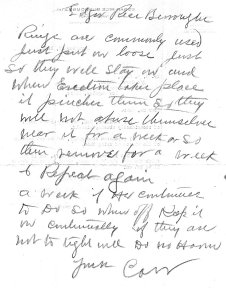 Edgar Rice Burroughs
Rings are commonly used
Just put on loose Just
So they will stay on and
when Erection takes place
it pinches them so they
will not abuse themselves
wear it for a week or so
then remove for a week
& Repeat again
a week if He continues
to Do so when off Keep it
on continually if they are
not to tight will Do no Harm
Jack Carr